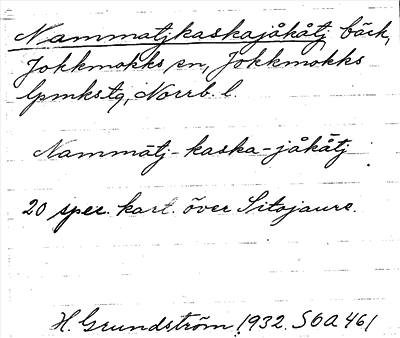 Nammatjkaskajåkåtj bäck,
Jokkmokks sn, Jokkmokks
lpmkstg, Norrb. l.
Nammātj-kaska-jåkåtj
20 spec. kart. över Sitojaure.
H. Grundström 1932. SOA 461